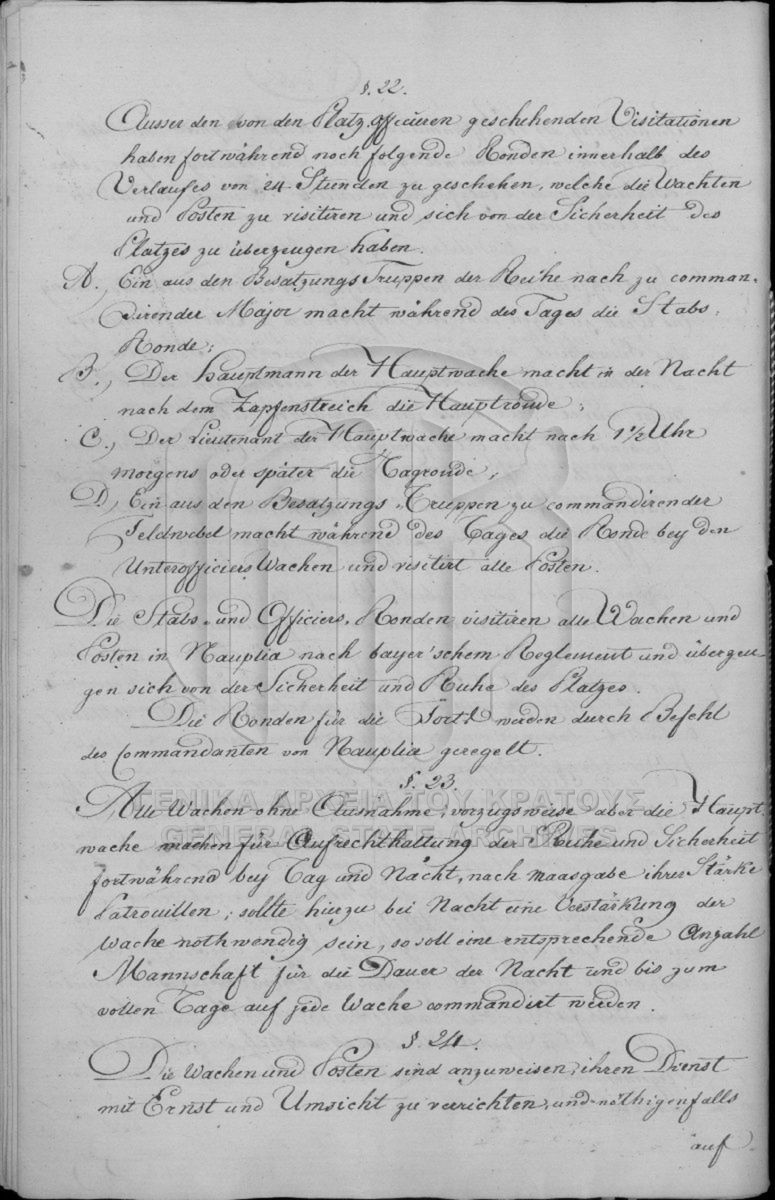 §. 22.
Ausser den von den Platzofficieren geschehenden Visitationen
haben fortwährend noch folgende Ronden innerhalb des
Verlaufes von 24 Stunden zu geschehen, welche die Wachten
und Posten zu visitiren und sich von der Sicherheit des
Platzes zu überzeugen haben.
A., Ein aus den Besatzungs Truppen der Reihe nach zu comman-
dirender Major macht während des Tages die Stabs-
Ronde;
B., Der Hauptmann der Hauptwache macht in der Nacht
nach dem Zapfenstreich die Hauptronde;
C., Der Lieutenant der Hauptwache macht nach 1½ Uhr
morgens oder später die Nagronde;
D., Ein aus den Besatzungs-Truppen zu commandirender
Feldwebel macht während des Tages die Ronde bey den
Unterofficiers Wachen und visitirt alle Posten.
Die Stabs- und Officiers-Ronden visitiren alle Wachen und
Posten in Nauplia nach bayer'schem Reglement und überzeu-
gen sich von der Sicherheit und Ruhe des Platzes.
Die Ronden für die Forts werden durch Befehl
des Commandanten von Nauplia geregelt.
§. 23.
Alle Wachen ohne Ausnahme, vorzugsweise aber die Haupt-
wache machen für Aufrechthaltung der Ruhe und Sicherheit
fortwährend bey Tag und Nacht, nach maasgabe ihrer Stärke
Patrouillen; sollte hierzu bei Nacht eine Verstärkung der
Wache nothwendig sein, so soll eine entsprechende Anzahl
Mannschaft für die Dauer der Nacht und bis zum
vollen Tage auf jede Wache commandirt werden.
§. 24.
Die Wachen und Posten sind anzuweisen, ihren Dienst
mit Ernst und Umsicht zu verrichten, und nöthigenfalls
auf
ΓΕΝΙΚΑ ΑΡΧΕΙΑ ΤΟΥ ΚΡΑΤΟΥΣ
GENERAL STATE ARCHIVES